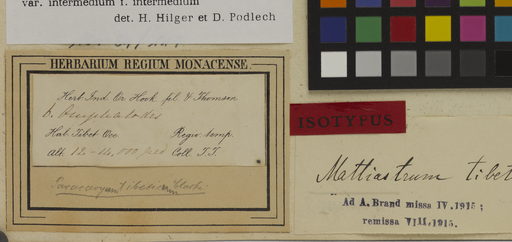 var. intermedium f. intermedium
det. H. Hilger et D. Podlech
HERBARIUM REGIUM MONACENSE.
Herb. Ind. Or. Hook. fil. & Thomson
Hab. Tibet Occ. Regio temp.
alt. 12-14,000 ped Coll. T.T.
Paracaryum tibeticum Clarke
ISOTYPUS
Mattiastrum tibet
Ad A. Brand missa IV. 1915;
remissa VIII. 1915.